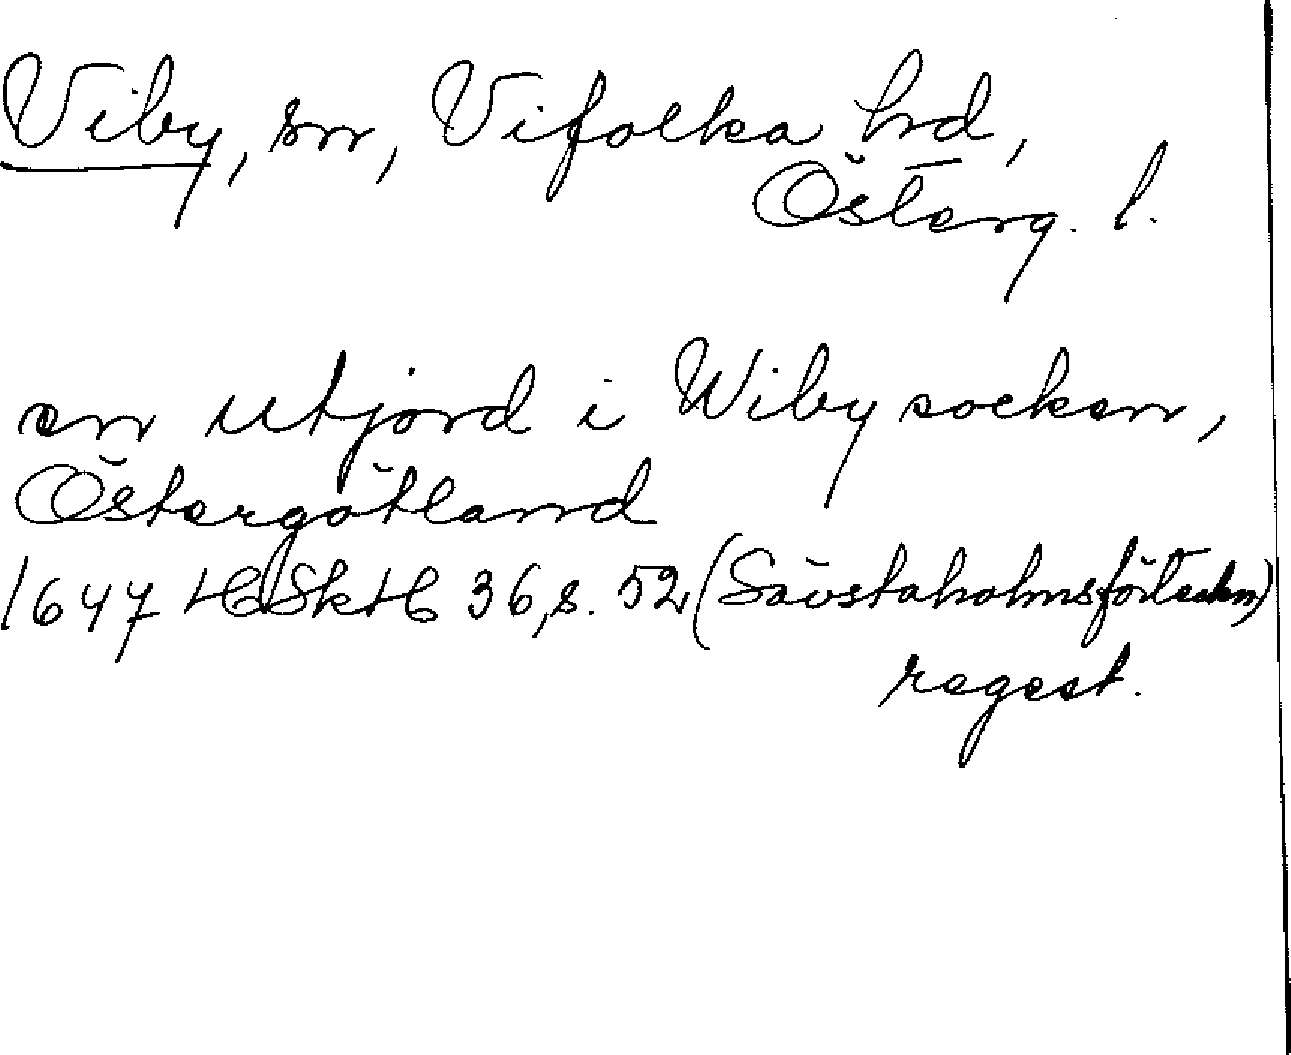 Viby, sn, Vifolka hd,
Österg. l.
en utjord i Wiby socken,
Östergötland
1647 HSkH 36, s. 52 (Sävstaholmsförteckn)
regest.